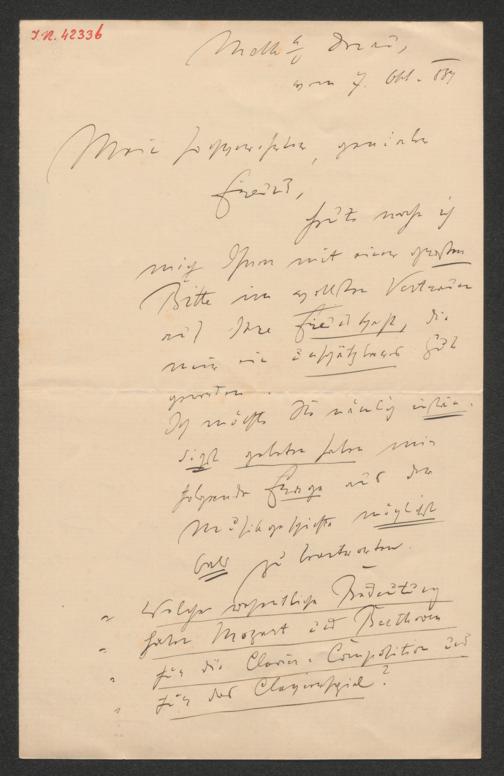 I.N. 42336
Melk a/ Donau,
vom 7. Okt. 189
Mein hochverehrter, genialer
Freund,
heute nahe ich
mich Ihnen mit einer großen
Bitte im vollsten Vertrauen
auf Ihre Freundschaft, die
mir ein unschätzbares Gut
geworden.
Ich möchte Sie nämlich instän-
digst gebeten haben mir
folgende Frage aus der
Musikgeschichte möglichst
bald zu beantworten.
„ Welche wesentliche Bedeutung
„ haben Mozart und Beethoven
„ für die Clavier-Composition und
„ für das Clavierspiel?